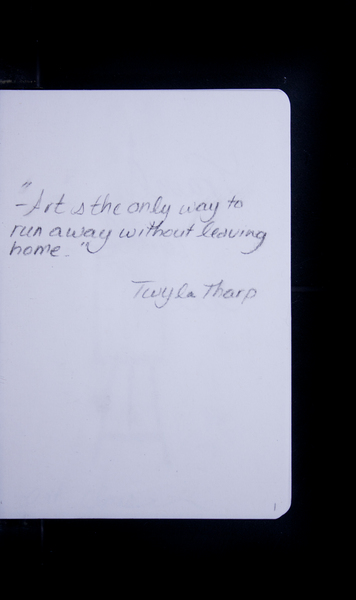 "-Art is the only way to
run away without leaving
home."
Twyla Tharp
1